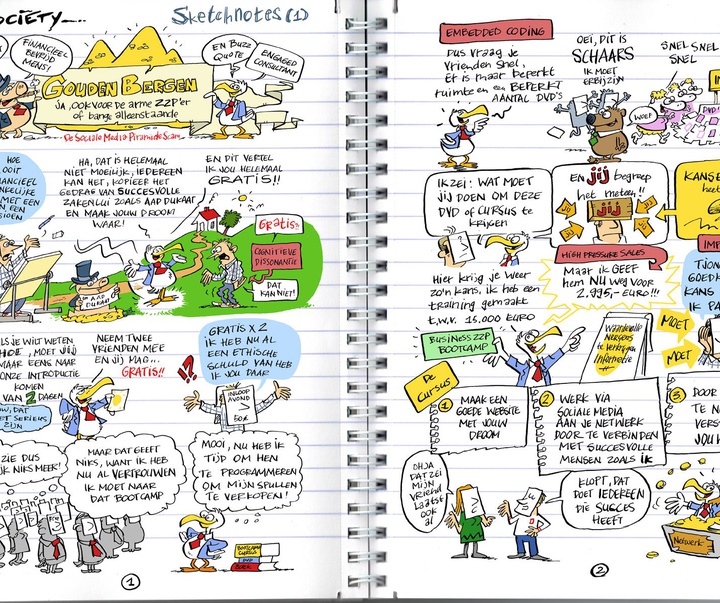 OCIËTY
Sketchnotes (1)
FINANCIEEL
BEVRIJD
MENS!
EN BUZZ
QUOTE
ENGAGED
CONSULTANT
GOUDEN BERGEN
JA, OOK VOOR DE ARME ZZP'er
of bange alleenstaande
De Sociale Media Piramide Scam
HOE
OOIT
MET EEN
EN EEN
HA, DAT IS HELEMAAL
NIET MOEILIJK, IEDEREEN
KAN HET, KOPIEER HET
GEDRAG VAN SUCCESVOLLE
ZAKENLUI ZOALS AAP DUKAAT
EN MAAK JOUW DROOM
WAAR!
EN DIT VERTEL
IK JOU HELEMAAL
GRATIS!!
Gratis!!
COGNITIEVE
DISSONANTIE
DAT
KAN NIET!
AAP
DUKAAT
ALS JE WILT WETEN
HOE, MOET JIJ
MAAR EENS NAAR
ONZE INTRODUCTIE
KOMEN
VAN 2 DAGEN
DAT
SERIEUS
ZIJN
NEEM TWEE
VRIENDEN MEE
EN JIJ MAG...
GRATIS!!
GRATIS X 2
IK HEB NU AL
EEN ETHISCHE
SCHULD VAN HEB
IK JOU DAAR
!?
INLOOP
AVOND
50€
ZIE DUS
IK NIKS MEER!
MAAR DAT GEEFT
NIKS, WANT IK HEB
NU AL VERTROUWEN
IK MOET NAAR
DAT BOOTCAMP
MOOI, NU HEB IK
TIJD OM HEN
TE PROGRAMMEREN
OM MIJN SPULLEN
TE VERKOPEN!
BOOTCAMP
CURSUS
DVD
BOEK
1
EMBEDDED CODING
DUS VRAAG JE
VRIENDEN SNEL,
ER IS MAAR BEPERKT
RUIMTE EN EEN BEPERKT
AANTAL DVD'S
OEI, DIT IS
SCHAARS
IK MOET
ERBIJ ZIJN
SNEL SNEL
SNEL
WOEF
DVD
IK ZEI: WAT MOET
JIJ DOEN OM DEZE
DVD OF CURSUS TE
KRIJGEN
EN JIJ BEGREEP
het meteen!!
JIJ
KANSE
HIGH PRESSURE SALES
Hier krijg je weer
zo'n kans, ik heb een
training gemaakt
t.w.v. 15.000 EURO
Maar ik GEEF
hem NU weg voor
2.995,- EURO!!!
IMP
TJON
GOEDK
KANS
IK PA
BUSINESS ZZP
BOOTCAMP
Waardevolle
Nergens
te verkrijgen
Informatie
MOET
MOET
De
Cursus
1 MAAK EEN
GOEDE WEBSITE
MET JOUW
DROOM
2 WERK VIA
SOCIALE MEDIA
AAN JE NETWERK
DOOR TE VERBINDEN
MET SUCCESVOLLE
MENSEN ZOALS IK
3 DOOR
TE N
VERST
JOUW
OH JA
DAT ZEI
MIJN
VRIEND
LAATST
OOK
al
KLOPT, DAT
DOET IEDEREEN
DIE SUCCES
HEEFT
Netwerk
2